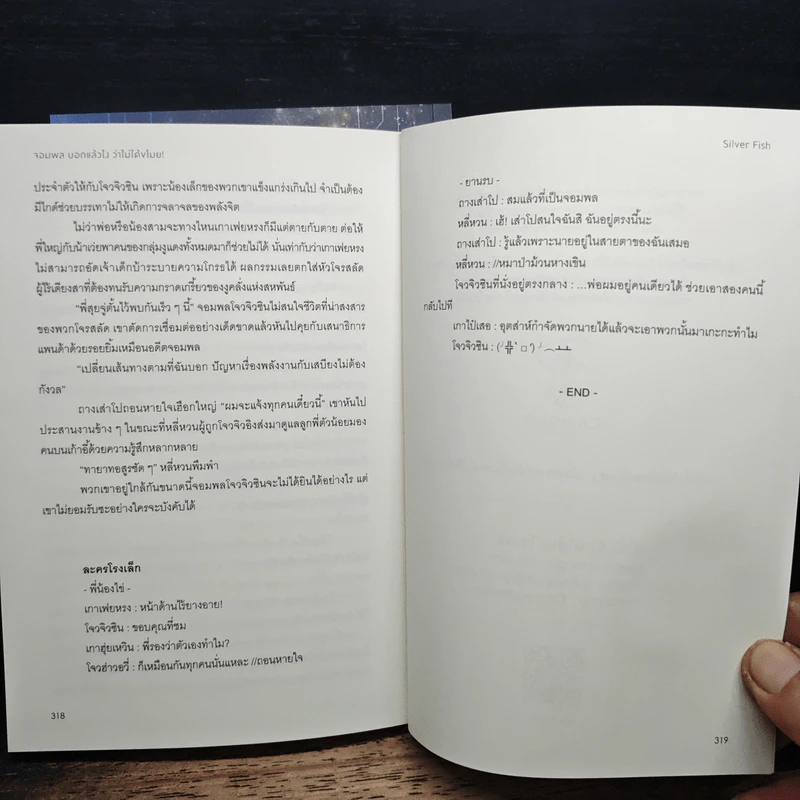 จอมพล บอกแล้วไง ว่าไม่ได้ขโมย!
ประจำตัวให้กับโจวจิวซิน เพราะน้องเล็กของพวกเขาแข็งแกร่งเกินไป จำเป็นต้อง
มีไกด์ช่วยบรรเทาไม่ให้เกิดการจลาจลของพลังจิต
ไม่ว่าพ่อหรือน้องสามจะทางไหนเกาเฟยหรงก็มีแต่ตายกับตาย ต่อให้
พี่ใหญ่กับน้าเว่ยพาคนของกลุ่มงูแดงทั้งหมดมาก็ช่วยไม่ได้ นั่นเท่ากับว่าเกาเฟยหรง
ไม่สามารถอัดเจ้าเด็กบ้าระบายความโกรธได้ ผลกรรมเลยตกใส่หัวโจรสลัด
ผู้ไร้เดียงสาที่ต้องทนรับความกราดเกรี้ยวของงูคลั่งแห่งสหพันธ์
"พี่สุยจู่ตั้นไว้พบกันเร็ว ๆ นี้" จอมพลโจวจิวซินไม่สนใจชีวิตที่น่าสงสาร
ของพวกโจรสลัด เขาตัดการเชื่อมต่ออย่างเด็ดขาดแล้วหันไปคุยกับเสนาธิการ
แพนด้าด้วยรอยยิ้มเหมือนอดีตจอมพล
"เปลี่ยนเส้นทางตามที่ฉันบอก ปัญหาเรื่องพลังงานกับเสบียงไม่ต้อง
กังวล"
ถางเส่าโปถอนหายใจเฮือกใหญ่ "ผมจะแจ้งทุกคนเดี๋ยวนี้" เขาหันไป
ประสานงานข้าง ๆ ในขณะที่หลี่หวนผู้ถูกโจวจิวอิงส่งมาดูแลลูกพี่ตัวน้อยมอง
คนบนเก้าอี้ด้วยความรู้สึกหลากหลาย
"ทายาทอสูรชัด ๆ" หลี่หวนพึมพำ
พวกเขาอยู่ใกล้กันขนาดนี้จอมพลโจวจิวซินจะไม่ได้ยินได้อย่างไร แต่
เขาไม่ยอมรับซะอย่างใครจะบังคับได้
ละครโรงเล็ก
- พี่น้องไข่ -
เกาเฟยหรง : หน้าด้านไร้ยางอาย!
โจวจิวซิน : ขอบคุณที่ชม
เกาฮุ่ยเหวิน : พี่รองว่าตัวเองทำไม?
โจวฮ่าวอวี่ : ก็เหมือนกันทุกคนนั่นแหละ //ถอนหายใจ
318
Silver Fish
- ยานรบ -
ถางเส่าโป : สมแล้วที่เป็นจอมพล
หลี่หวน : เฮ้! เส่าโปสนใจฉันสิ ฉันอยู่ตรงนี้นะ
ถางเส่าโป : รู้แล้วเพราะนายอยู่ในสายตาของฉันเสมอ
หลี่หวน : //หมาป่าม้วนหางเขิน
โจวจิวซินที่นั่งอยู่ตรงกลาง : ...พ่อผมอยู่คนเดียวได้ ช่วยเอาสองคนนี้
กลับไปที
เกาไป๋เสอ : อุตส่าห์กำจัดพวกนายได้แล้วจะเอาพวกนั้นมาเกะกะทำไม
โจวจิวซิน : (╯╬ ˋ □ ˊ) ╯︵┻┻
- END -
319